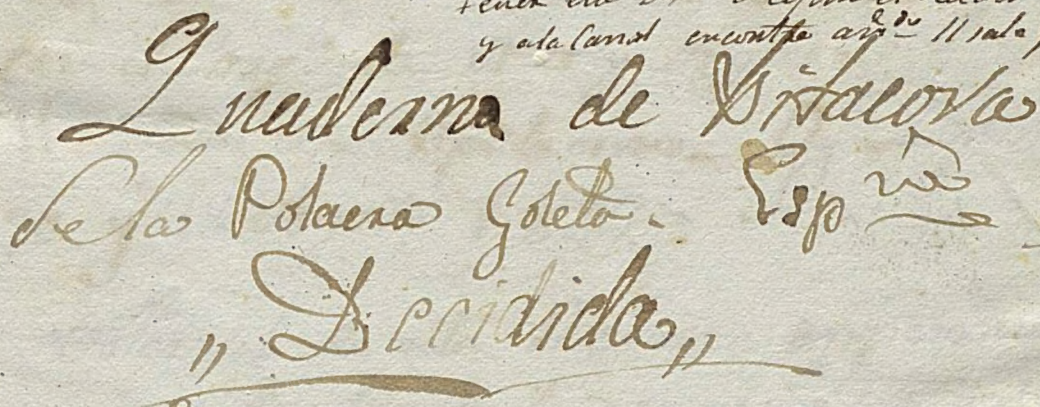 y ala Canal encontre
Quaderno de Vitacora
de la Polacra Goleta. Espña
„Decidida„